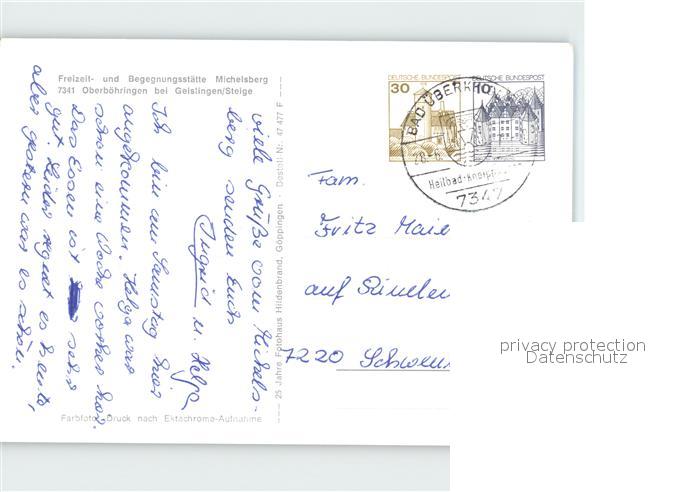 Freizeit- und Begegnungsstätte Michelsberg
7341 Oberböhringen bei Geislingen/Steige
viele Grüße vom Michels-
berg senden Euch
Ingrid u. Helga
Ich bin am Samstag hier
angekommen. Helga war
schon eine Woche vorher hier.
Das Essen ist sehr
gut. Leider regnet es heute,
aber gestern war es schön.
Farbfoto-Druck nach Ektachrome-Aufnahme
25 Jahre Fotohaus Hildenbrand, Göppingen · Bestell-Nr. 47 477 F
DEUTSCHE BUNDESPOST
30
DEUTSCHE BUNDESPOST
BAD ÜBERKI
Heilbad-Kneip
7347
Fam.
Fritz Maie
auf
7220 Schwen
privacy protection
Datenschutz